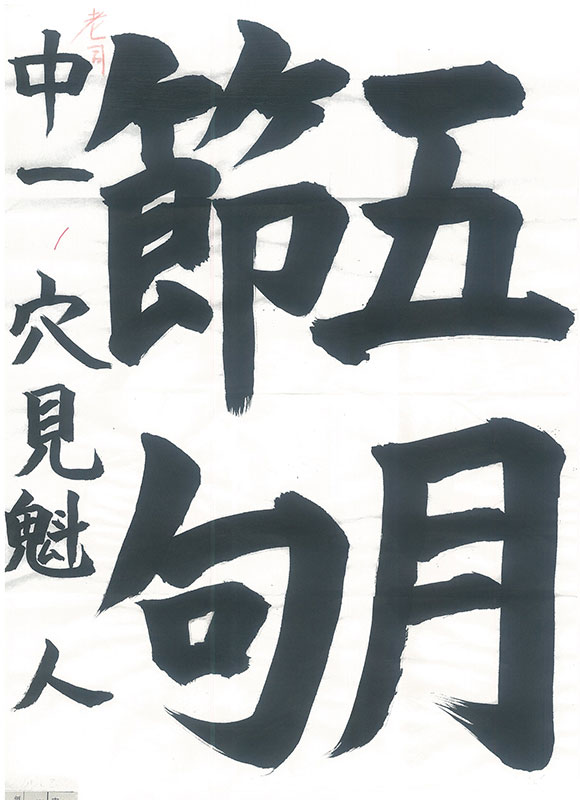 五月
節句
中一 穴見魁人
老司